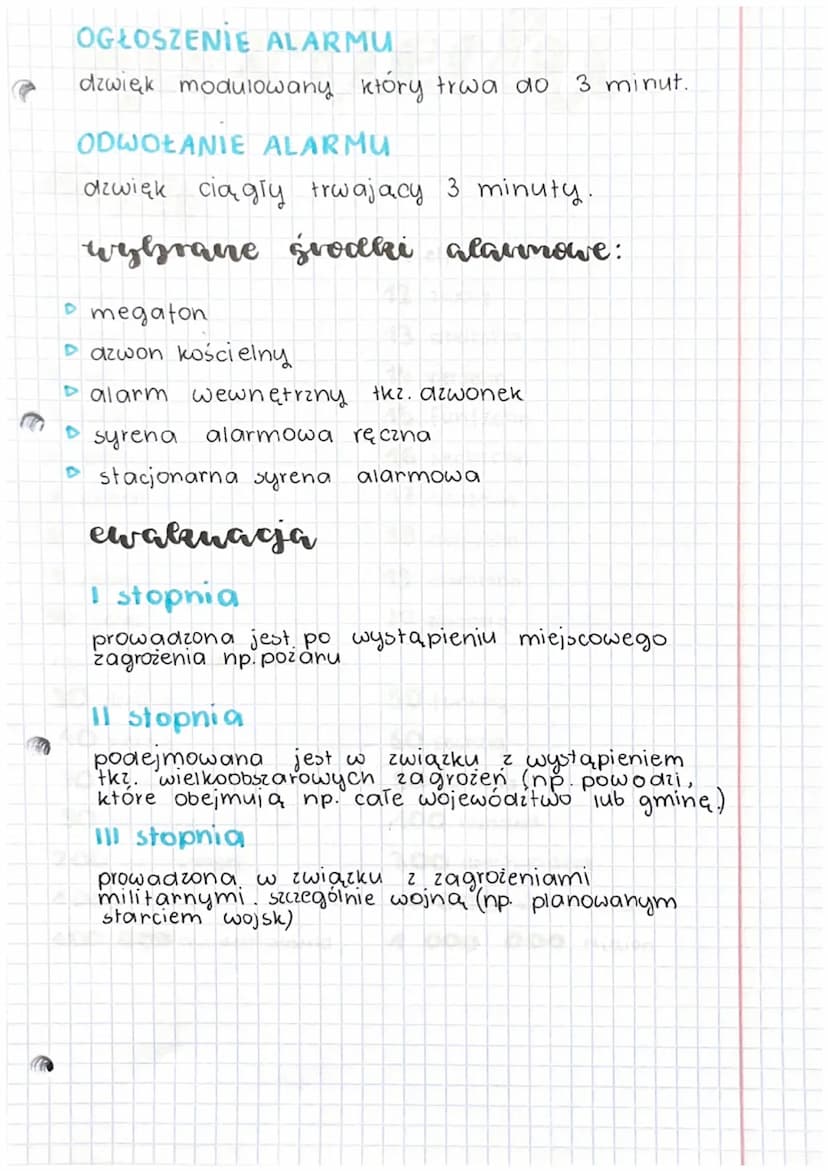 OGŁOSZENIE ALARMU
dzwięk modulowany który trwa do 3 minut.
ODWOŁANIE ALARMU
dzwięk ciągły trwający 3 minuty.
wybrane środki alarmowe:
megaton
dzwon kościelny
alarm wewnętrzny tkz. dzwonek
syrena alarmowa ręczna
stacjonarna syrena alarmowa
ewakuacja
I stopnia
prowadzona jest po wystąpieniu miejscowego
zagrożenia np. pożaru
II stopnia
podejmowana jest w związku z wystąpieniem
tkz. wielkoobszarowych zagrożeń (np. powodzi,
które obejmują np. całe województwo lub gminę.)
III stopnia
prowadzona w związku z zagrożeniami
militarnymi. szczególnie wojną (np. planowanym
starciem wojsk)